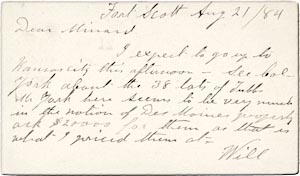 Fort Scott Aug 21/84
Dear Minard
I expect to go up to
Kansas city this afternoon - See Col
York about the 38 lots of Tubbs
Mr York here seems to be very much
in the notion of Des Moines property
ask $20000 for them as that is
what I priced them at-
Will